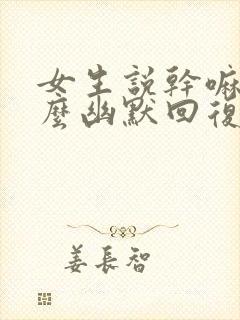 女生説幹嘛
麼幽默回復
姜長智